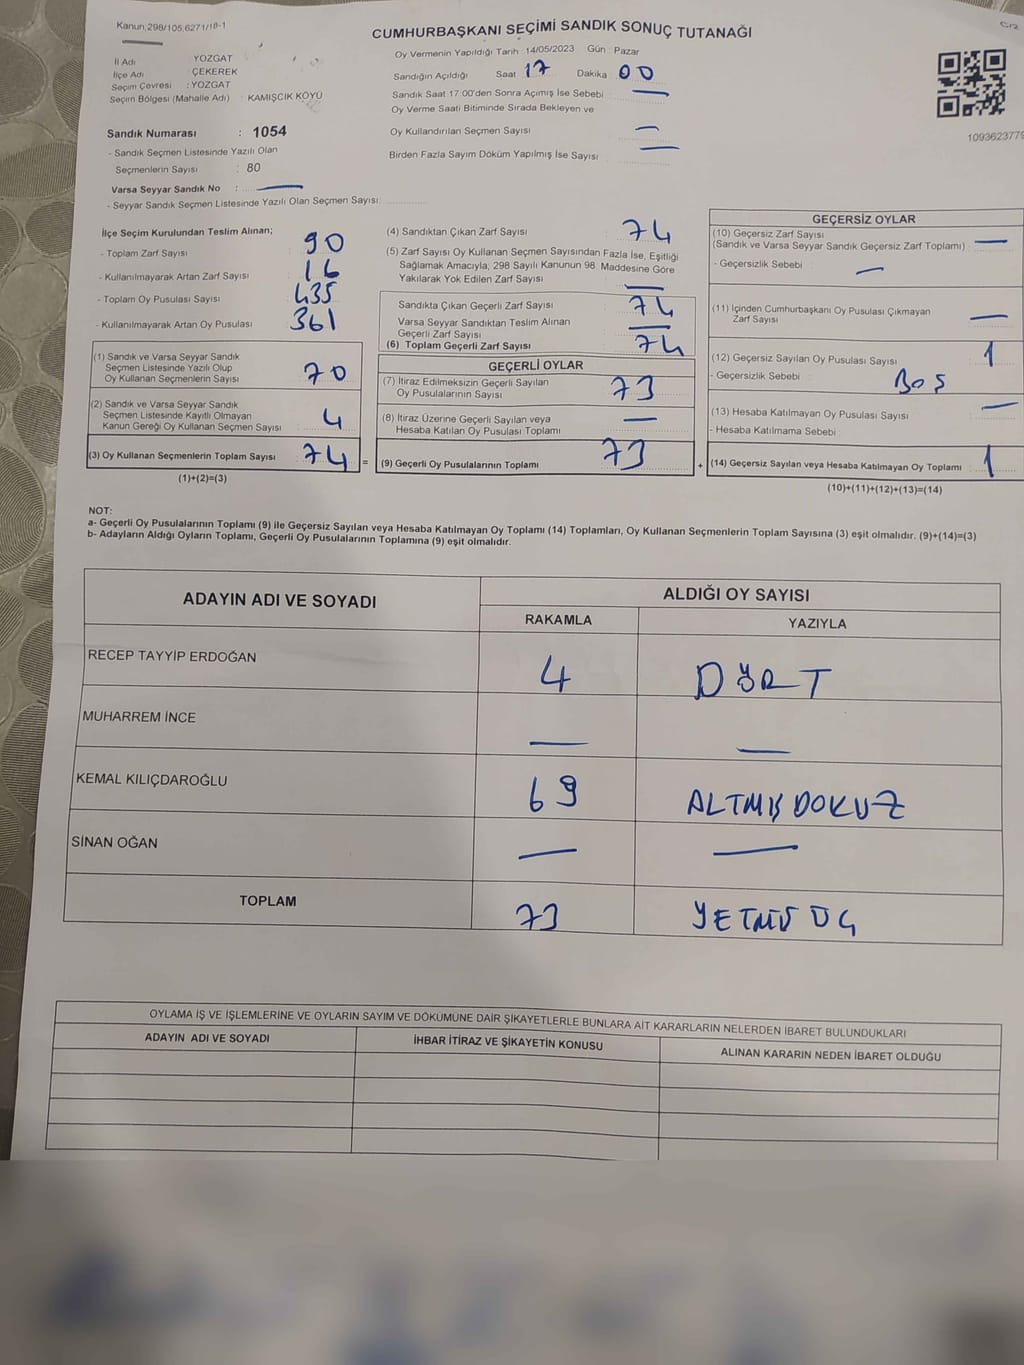 Kanun,298/105,6271/18-1
CUMHURBAŞKANI SEÇİMİ SANDIK SONUÇ TUTANAĞI
İl Adı YOZGAT
İlçe Adı : ÇEKEREK
Seçim Çevresi : YOZGAT
Seçim Bölgesi (Mahalle Adı) : KAMIŞCIK KÖYÜ
Sandık Numarası : 1054
- Sandık Seçmen Listesinde Yazılı Olan
Seçmenlerin Sayısı : 80
Varsa Seyyar Sandık No : —
- Seyyar Sandık Seçmen Listesinde Yazılı Olan Seçmen Sayısı:
Oy Vermenin Yapıldığı Tarih : 14/05/2023 Gün : Pazar
Sandığın Açıldığı Saat 17 Dakika 00
Sandık Saat 17:00'den Sonra Açımış İse Sebebi —
Oy Verme Saati Bitiminde Sırada Bekleyen ve
Oy Kullandırılan Seçmen Sayısı —
Birden Fazla Sayım Döküm Yapılmış İse Sayısı —
1093623779
İlçe Seçim Kurulundan Teslim Alınan;
- Toplam Zarf Sayısı 90
- Kullanılmayarak Artan Zarf Sayısı 16
- Toplam Oy Pusulası Sayısı 435
- Kullanılmayarak Artan Oy Pusulası 361
(1) Sandık ve Varsa Seyyar Sandık
Seçmen Listesinde Yazılı Olup
Oy Kullanan Seçmenlerin Sayısı 70
(2) Sandık ve Varsa Seyyar Sandık
Seçmen Listesinde Kayıtlı Olmayan
Kanun Gereği Oy Kullanan Seçmen Sayısı 4
(3) Oy Kullanan Seçmenlerin Toplam Sayısı 74 =
(1)+(2)=(3)
(4) Sandıktan Çıkan Zarf Sayısı 74
(5) Zarf Sayısı Oy Kullanan Seçmen Sayısından Fazla İse, Eşitliği
Sağlamak Amacıyla; 298 Sayılı Kanunun 98. Maddesine Göre
Yakılarak Yok Edilen Zarf Sayısı —
Sandıkta Çıkan Geçerli Zarf Sayısı 74
Varsa Seyyar Sandıktan Teslim Alınan
Geçerli Zarf Sayısı —
(6) Toplam Geçerli Zarf Sayısı 74
GEÇERLİ OYLAR
(7) İtiraz Edilmeksizin Geçerli Sayılan
Oy Pusulalarının Sayısı 73
(8) İtiraz Üzerine Geçerli Sayılan veya
Hesaba Katılan Oy Pusulası Toplamı —
(9) Geçerli Oy Pusulalarının Toplamı 73 +
GEÇERSİZ OYLAR
(10) Geçersiz Zarf Sayısı
(Sandık ve Varsa Seyyar Sandık Geçersiz Zarf Toplamı) —
- Geçersizlik Sebebi : —
(11) İçinden Cumhurbaşkanı Oy Pusulası Çıkmayan
Zarf Sayısı —
(12) Geçersiz Sayılan Oy Pusulası Sayısı 1
- Geçersizlik Sebebi : BOŞ
(13) Hesaba Katılmayan Oy Pusulası Sayısı —
- Hesaba Katılmama Sebebi
(14) Geçersiz Sayılan veya Hesaba Katılmayan Oy Toplamı 1
(10)+(11)+(12)+(13)=(14)
NOT:
a- Geçerli Oy Pusulalarının Toplamı (9) ile Geçersiz Sayılan veya Hesaba Katılmayan Oy Toplamı (14) Toplamları, Oy Kullanan Seçmenlerin Toplam Sayısına (3) eşit olmalıdır. (9)+(14)=(3)
b- Adayların Aldığı Oyların Toplamı, Geçerli Oy Pusulalarının Toplamına (9) eşit olmalıdır.
ADAYIN ADI VE SOYADI ALDIĞI OY SAYISI
RAKAMLA YAZIYLA
RECEP TAYYİP ERDOĞAN 4 DÖRT
MUHARREM İNCE — —
KEMAL KILIÇDAROĞLU 69 ALTMIŞ DOKUZ
SİNAN OĞAN — —
TOPLAM 73 YETMİŞ ÜÇ
OYLAMA İŞ VE İŞLEMLERİNE VE OYLARIN SAYIM VE DÖKÜMÜNE DAİR ŞİKAYETLERLE BUNLARA AİT KARARLARIN NELERDEN İBARET BULUNDUKLARI
ADAYIN ADI VE SOYADI İHBAR İTİRAZ VE ŞİKAYETİN KONUSU ALINAN KARARIN NEDEN İBARET OLDUĞU